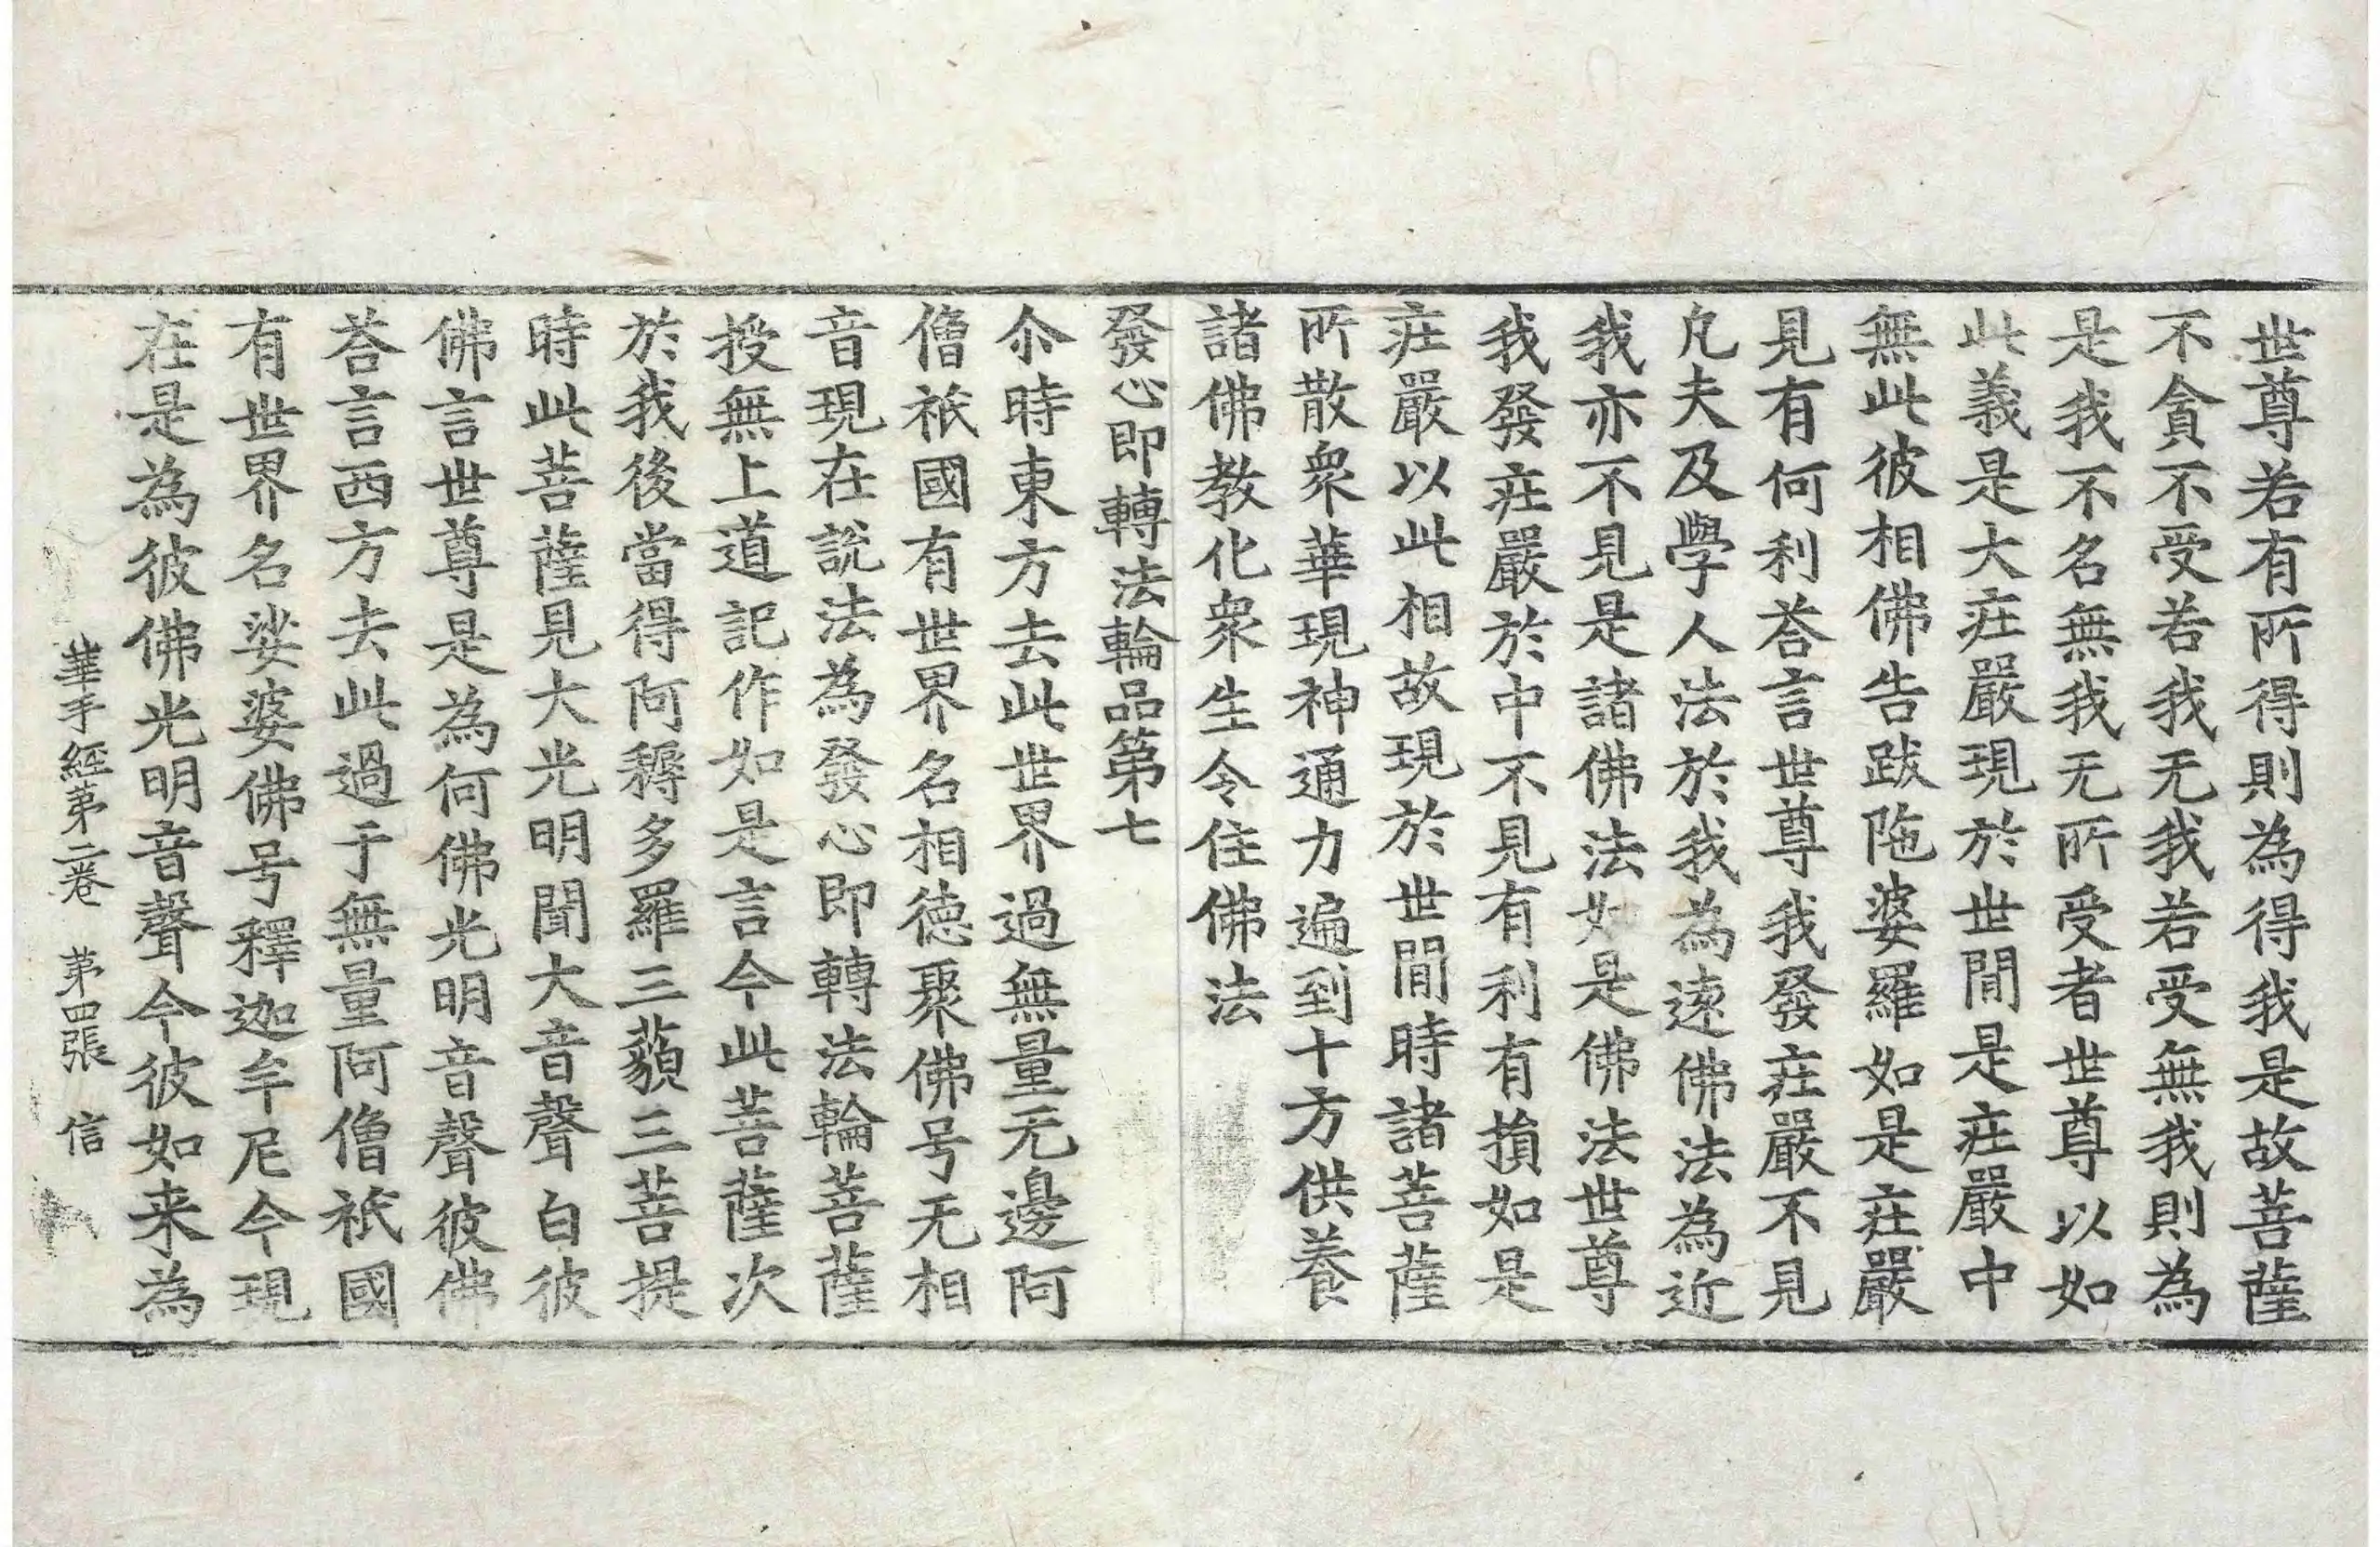 世尊若有所得則為得我是故菩薩
不貪不受若我无我若受無我則為
是我不名無我无所受者世尊以如
此義是大庄嚴現於世間是庄嚴中
無此彼相佛告跋陁婆羅如是庄嚴
見有何利荅言世尊我發庄嚴不見
凡夫及學人法於我為遠佛法為近
我亦不見是諸佛法如是佛法世尊
我發庄嚴於中不見有利有損如是
庄嚴以此相故現於世間時諸菩薩
所散衆華現神通力遍到十方供養
諸佛教化衆生令住佛法
發心即轉法輪品第七
尒時東方去此世界過無量无邊阿
僧祇國有世界名相德聚佛号无相
音現在說法為發心即轉法輪菩薩
授無上道記作如是言今此菩薩次
於我後當得阿耨多羅三藐三菩提
時此菩薩見大光明聞大音聲白彼
佛言世尊是為何佛光明音聲彼佛
荅言西方去此過于無量阿僧祇國
有世界名娑婆佛号釋迦牟尼今現
在是為彼佛光明音聲今彼如来為
華手經第二卷 第四張 信